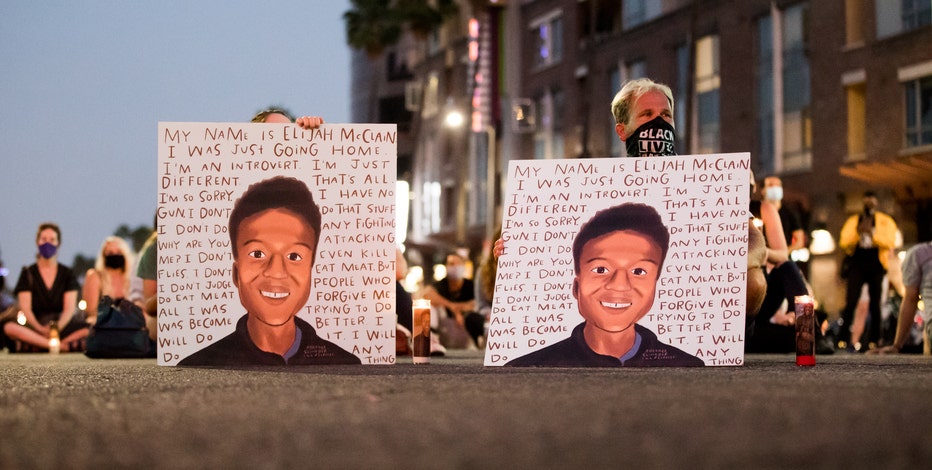 MY NAME IS ELIJAH McCLAIN
I WAS JUST GOING HOME..
I'M AN INTROVERT I'M JUST
DIFFERENT THAT'S ALL
I'M SO SORRY I HAVE NO
GUN I DON'T DO THAT STUFF
I DON'T DO ANY FIGHTING
WHY ARE YOU ATTACKING
ME? I DON'T EVEN KILL
FLIES I DON'T EAT MEAT. BUT
I DON'T JUDGE PEOPLE WHO
DO EAT MEAT FORGIVE ME
ALL I WAS TRYING TO DO
WAS BECOME BETTER I
WILL DO IT. I WILL
DO ANY
THING
MY NAME IS ELIJAH McCLAIN
I WAS JUST GOING HOME..
I'M AN INTROVERT I'M JUST
DIFFERENT THAT'S ALL
I'M SO SORRY I HAVE NO
GUN I DON'T DO THAT STUFF
I DON'T DO ANY FIGHTING
WHY ARE YOU ATTACKING
ME? I DON'T EVEN KILL
FLIES I DON'T EAT MEAT. BUT
I DON'T JUDGE PEOPLE WHO
DO EAT MEAT FORGIVE ME
ALL I WAS TRYING TO DO
WAS BECOME BETTER I
WILL DO IT. I WILL
DO ANY
THING
BLACK
LIVES